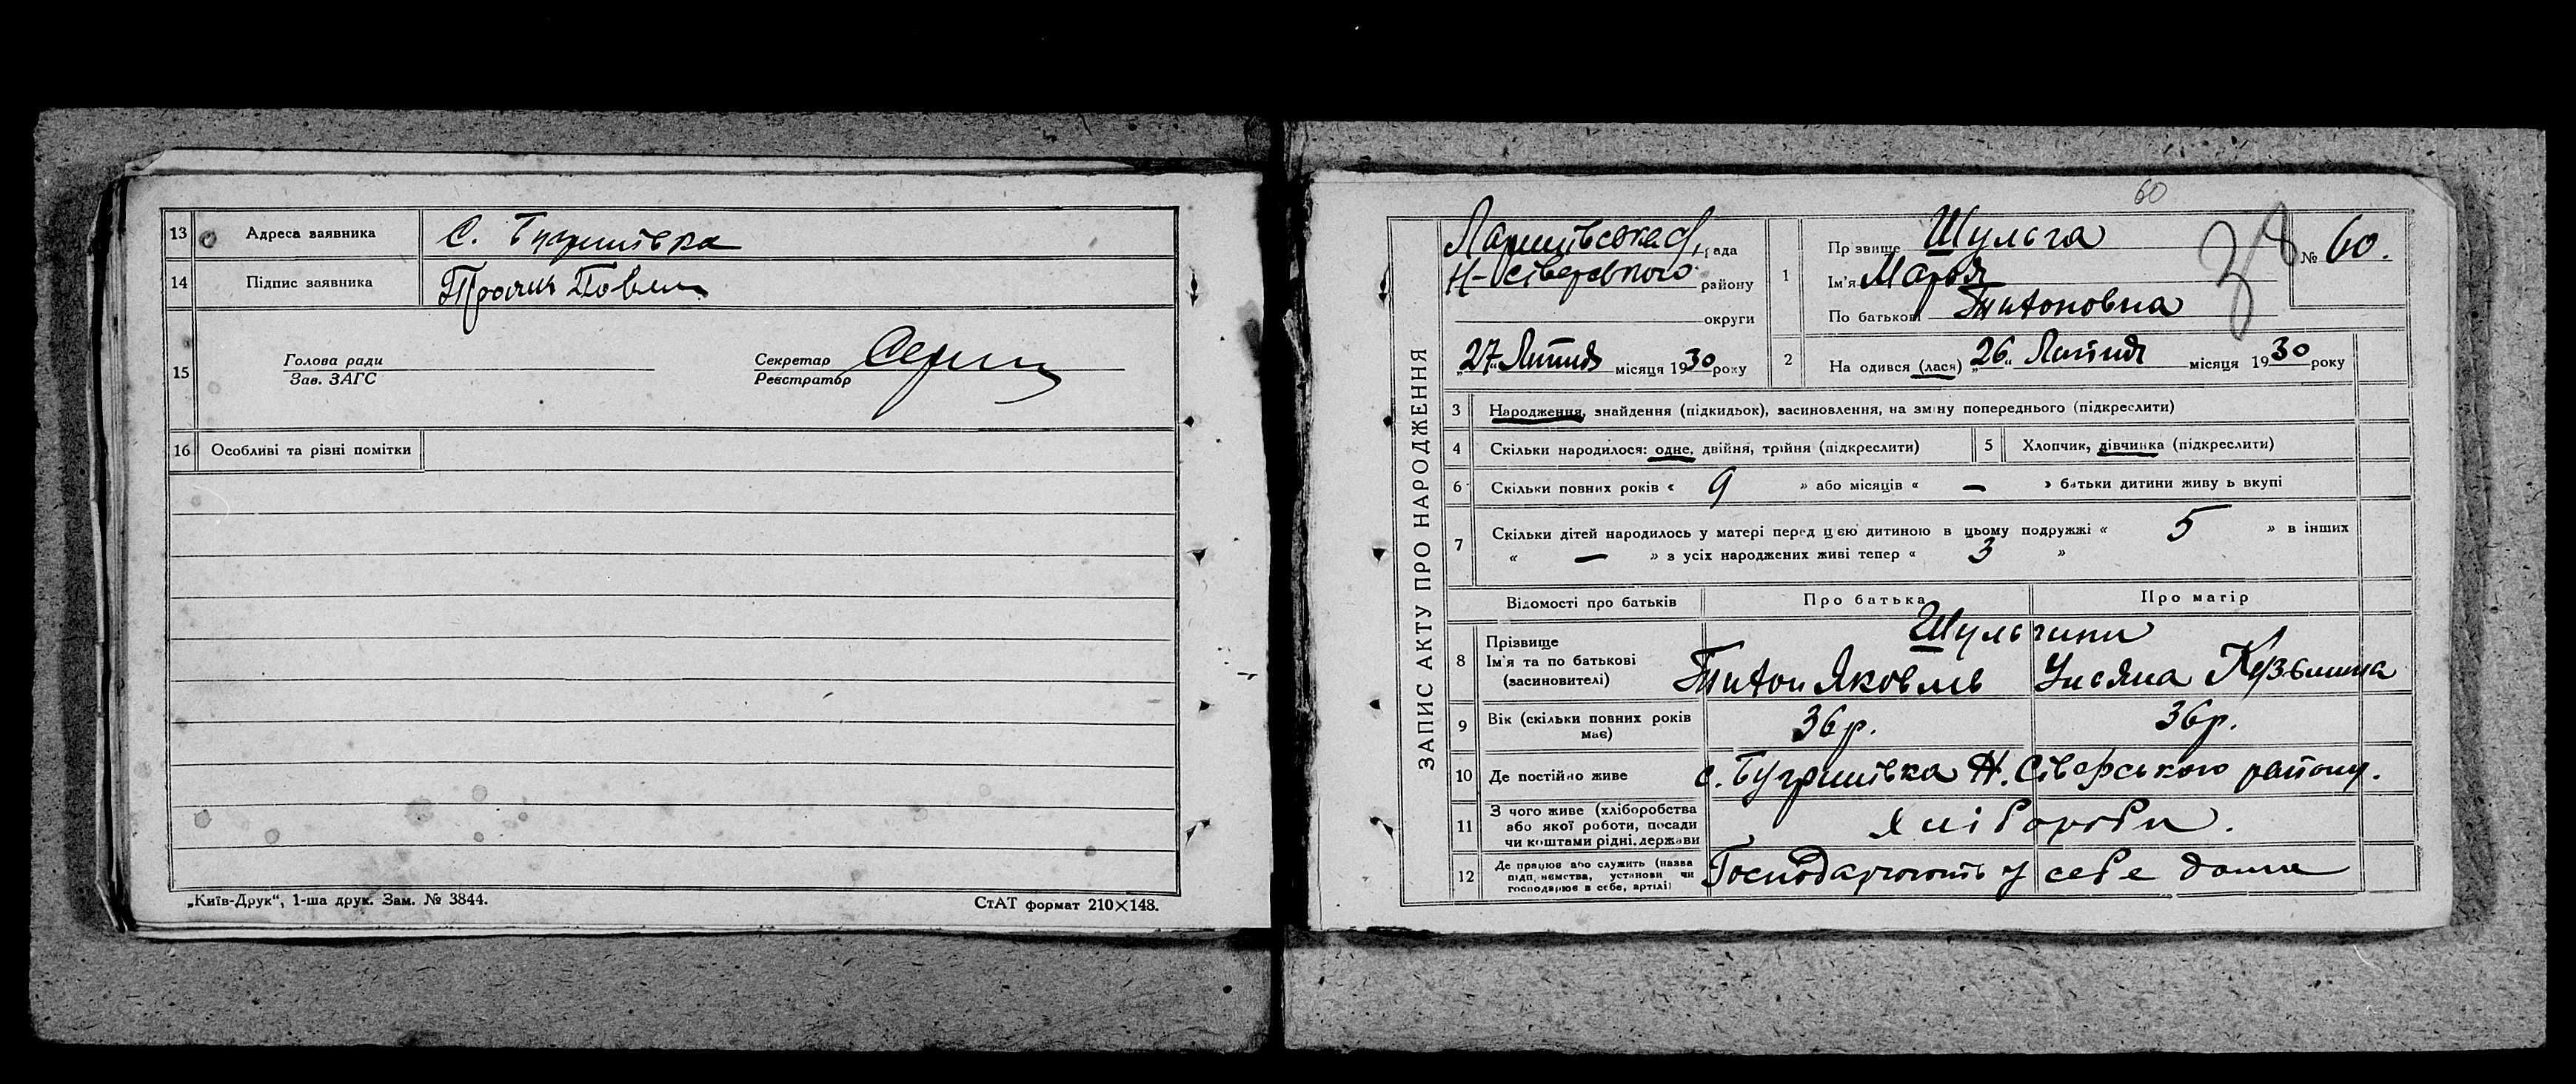 13 Адреса заявника С. Бугринівка
14 Підпис заявника
15 Голова ради
Зав. ЗАГС
Секретар
Реєстратор
16 Особливі та різні помітки
„Київ-Друк“, 1-ша друк. Зам. № 3844.
СтАТ формат 210×148.
60
ЗАПИС АКТУ ПРО НАРОДЖЕННЯ
рада
Н-Сіверського району
округи
„27“ Липня місяця 1930 року
38
№ 60.
1 Прізвище Шульга
Ім'я Марья
По батькові Тихоновна
2 Народився (лася) „26“ Липня місяця 1930 року
3 Народження, знайдення (підкидьок), засиновлення, на зміну попереднього (підкреслити)
4 Скільки народилося: одне, двійня, трійня (підкреслити)
5 Хлопчик, дівчинка (підкреслити)
6 Скільки повних років « 9 » або місяців « — » батьки дитини живуть вкупі
7 Скільки дітей народилось у матері перед цією дитиною в цьому подружжі « 5 » в інших
« — » з усіх народжених живі тепер « 3 »
Відомості про батьків Про батька Про матір
8 Прізвище Шульгини
Ім'я та по батькові Тихон Яковлів Ульяна Кузьминна
(засиновителі)
9 Вік (скільки повних років має) 36 р. 36 р.
10 Де постійно живе с. Бугринівка Н. Сіверського району.
11 З чого живе (хліборобства
або якої роботи, посади
чи коштами рідні, держави
Хлібороби.
12 Де працює або служить (назва
підприємства, установи чи
господарює в себе, артілі)
Господарюють у себе дома